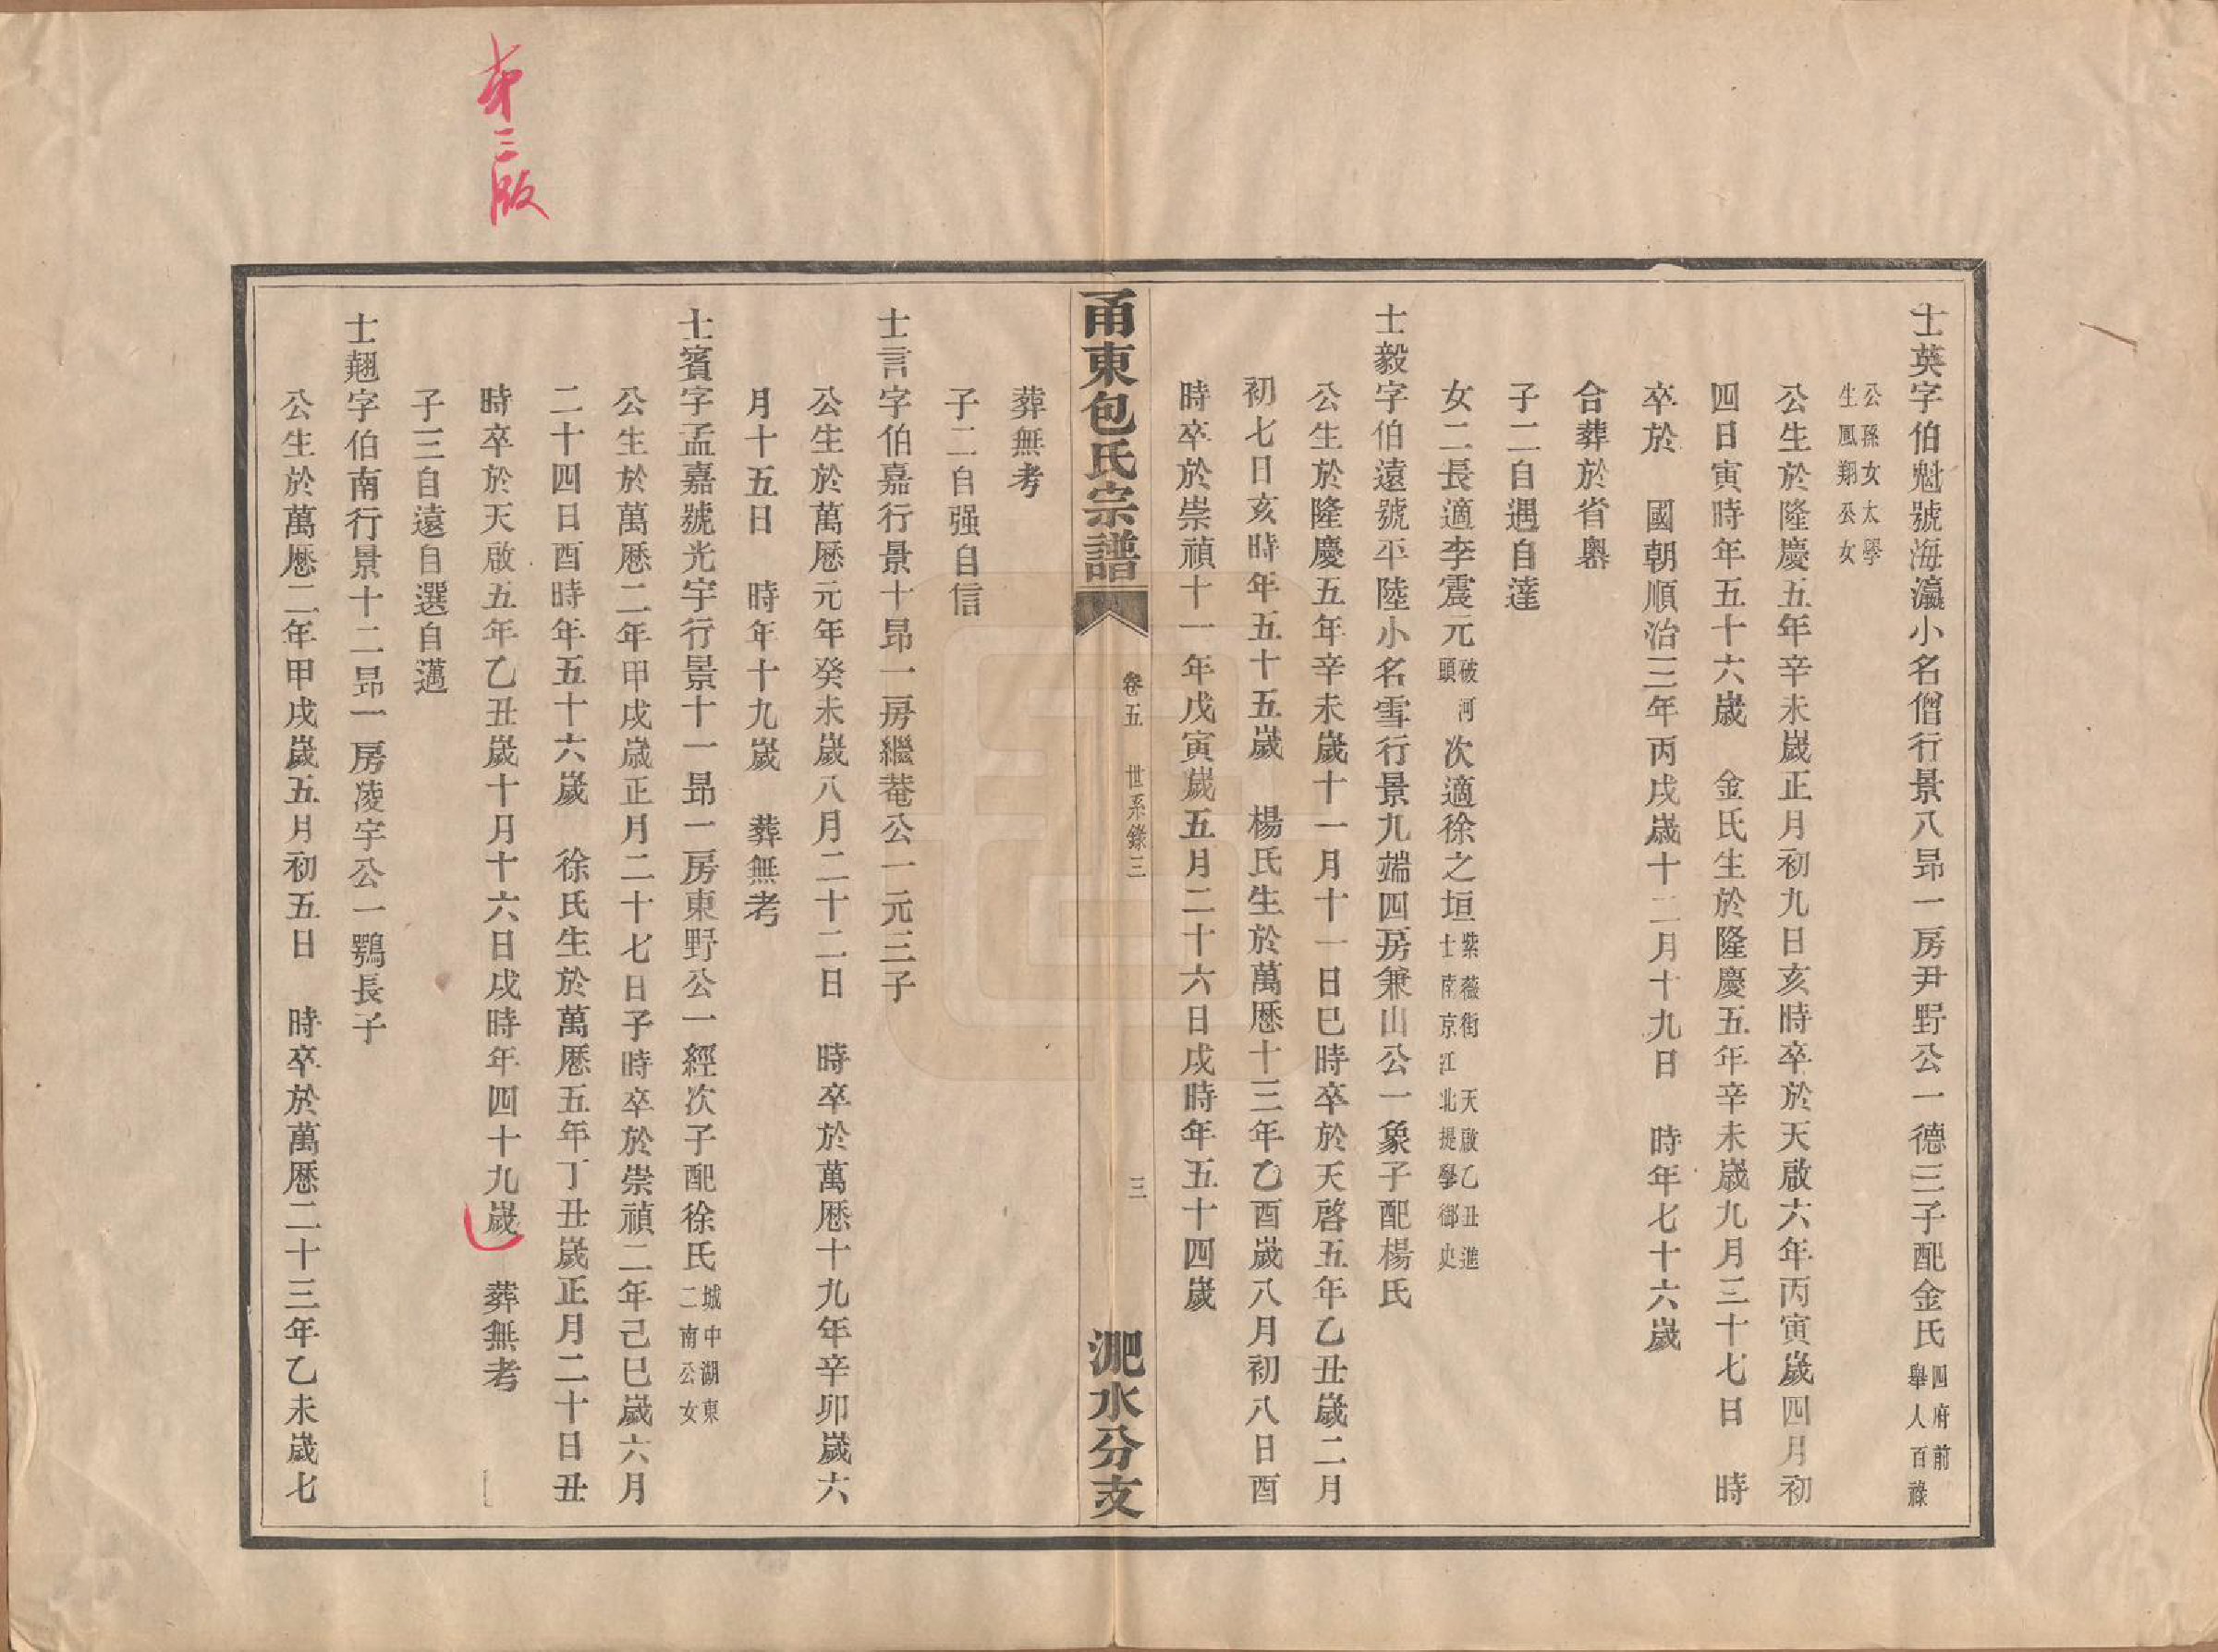 士英字伯魁號海瀛小名僧行景八昴一房尹野公一德三子配金氏四府前舉人百祿
公孫女太學生鳳翔公女
公生於隆慶五年辛未歲正月初九日亥時卒於天啟六年丙寅歲四月初
四日寅時年五十六歲　金氏生於隆慶五年辛未歲九月三十七日　時
卒於　國朝順治三年丙戌歲十二月十九日　時年七十六歲
合葬於省嶴
子二自遇自達
女二長適李震元破河頭次適徐之垣紫薇街天啟乙丑進士南京江北提學御史
士毅字伯遠號平陸小名雪行景九端四房兼山公一象子配楊氏
公生於隆慶五年辛未歲十一月十一日巳時卒於天啓五年乙丑歲二月
初七日亥時年五十五歲　楊氏生於萬厯十三年乙酉歲八月初八日酉
時卒於崇禎十一年戊寅歲五月二十六日戌時年五十四歲
甬東包氏宗譜　卷五　世系錄三　三　淝水分支
葬無考
子二自强自信
士言字伯嘉行景十昴一房繼菴公一元三子
公生於萬厯元年癸未歲八月二十二日　時卒於萬厯十九年辛卯歲六
月十五日　時年十九歲　葬無考
士賓字孟嘉號光宇行景十一昴一房東野公一經次子配徐氏城中湖東二南公女
公生於萬厯二年甲戌歲正月二十七日子時卒於崇禎二年己巳歲六月
二十四日酉時年五十六歲　徐氏生於萬厯五年丁丑歲正月二十日丑
時卒於天啟五年乙丑歲十月十六日戌時年四十九歲　葬無考
子三自遠自選自邁
士翹字伯南行景十二昴一房凌宇公一鶚長子
公生於萬厯二年甲戌歲五月初五日　時卒於萬厯二十三年乙未歲七
第三版